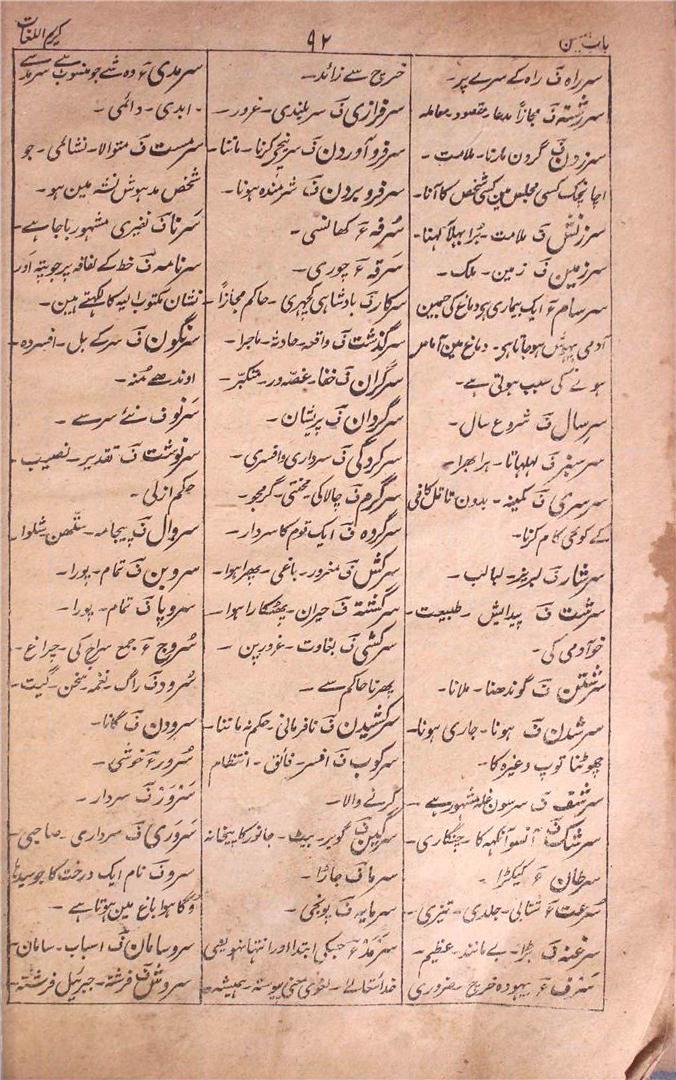 باب سین
۹۲
کریم اللغات
سرراہ ف راہ کے سرے پر۔
سررشتہ ف مجازاً مدعا۔ مقصود۔ معاملہ
سرزدن ف گردن مارنا۔ ملامت۔
اچانچک کسی مجلس مین کسی شخص کا آنا۔
سرزنش ف ملامت۔ برا بہلا کہنا۔
سرزمین ف زمین۔ ملک۔
سرسام ع ایک بیماری ہی دماغ کی جسمین
آدمی بیہوش ہوجاتا ہی۔ دماغ مین آماس
ہونے کی سبب ہوتی ہے۔
سرسال ف شروع سال۔
سرسبز ف لہلہاتا۔ ہرا بھرا۔
سرسری ف کمینہ۔ بدون تامل کافی
کے کوئی کام کرنا۔
سرشار ف لبریز۔ لبالب۔
سرشت ف پیدایش۔ طبیعت۔
خو آدمی کی۔
سرشتن ف گوندھنا۔ ملانا۔
سرشدن ف ہونا۔ جاری ہونا۔
چھوٹنا توپ وغیرہ کا۔
سرشف ف سرسون غلہ مشہور ہے۔
سرشک ف آنسو آنکہہ کا۔ چنگاری۔
سرطان ع کیکڑا۔
سُرعت ع شتابی۔ جلدی۔ تیزی۔
سرغنہ ف بڑا۔ بے مانند۔ عظیم۔
سَرَف ع بیہودہ خرچ۔ ضروری
خرچ سے زائد۔
سرفرازی ف سربلندی۔ غرور۔
سرفرو آوردن ف سر نیچی کرنا۔ ماننا۔
سرفرو بردن ف شرمندہ ہونا۔
سُرفہ ع کھانسی۔
سَرقہ ع چوری۔
سرکار ف بادشاہی کچہری۔ حاکم مجازاً۔
سرگذشت ف واقعہ۔ حادثہ۔ ماجرا۔
سرگران ف خفا۔ غصہ ور۔ متکبر۔
سرگردان ف پریشان۔
سرکردگی ف سرداری و افسری۔
سرگرم ف چالاکی۔ محنتی۔ گرمجو۔
سرگروہ ف ایک قوم کا سردار۔
سرکش ف مغرور۔ باغی۔ پھرا ہوا۔
سرگشتہ ف حیران۔ پھٹکارا ہوا۔
سرکشی ف بغاوت۔ غرور پن۔
پھرنا حاکم سے۔
سرکشیدن ف نافرمانی۔ حکم نہ ماننا۔
سرکوب ف افسر۔ فائق۔ انتظام
کرنے والا۔
سرگین ف گوبر۔ بیٹ۔ جانور کا پیخانہ
سرما ف جاڑا۔
سرمایہ ف پونجی۔
سرمد ع جسکی ابتدا اور انتہا نہو یعنی
خدا تعالے۔ لغوی معنی پیوستہ۔ ہمیشہ۔
سرمدی ع وہ شے جو منسوب ہے سرمد سے
۔ ابدی۔ دائمی۔
سرمست ف متوالا۔ نشائمی۔ جو
شخص مدہوش نشہ مین ہو۔
سرنا ف نفیری مشہور باجا ہے۔
سرنامہ ف خط کے لفافہ پر جو پتہ اور
نشان مکتوب الیہ کا لکھتے ہین۔
سرنگون ف سر کے بل۔ افسردہ۔
اوندھے منہ۔
سرنو ف نئے سرے سے۔
سرنوشت ف تقدیر۔ نصیب۔
حکم ازلی۔
سروال ف پیجامہ۔ شلوار
سروبن ف تمام۔ پورا۔
سروپا ف تمام۔ پورا۔
سُروج ع جمع سراج کی۔ چراغ۔
سرود ف راگ۔ نغمہ۔ سخن۔ گیت۔
سرودن ف گانا۔
سُرور ع خوشی۔
سَروَر ف سردار۔
سَروَری ف سرداری۔ صاحبی۔
سرو ف نام ایک درخت کا جو سیدھا
اوگا ہوا باغ مین ہوتا ہے۔
سروسامان ف اسباب۔ سامان۔
سروش ف فرشتہ۔ جبرئیل فرشتہ۔